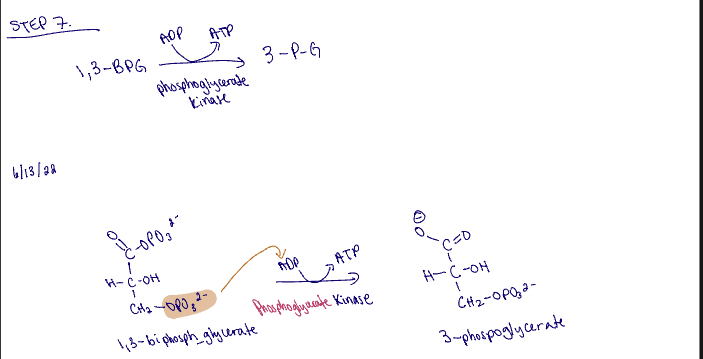 STEP 7.
ADP ATP
1,3-BPG 3-P-G
phosphoglycerate
kinase
6/13/22
O OPO3 2-
C
H-C-OH
CH2-OPO3 2-
1,3-biphosph_glycerate
ADP ATP
Phosphoglycerate Kinase
⊖
O C=O
H-C-OH
CH2-OPO3 2-
3-phospoglycerate